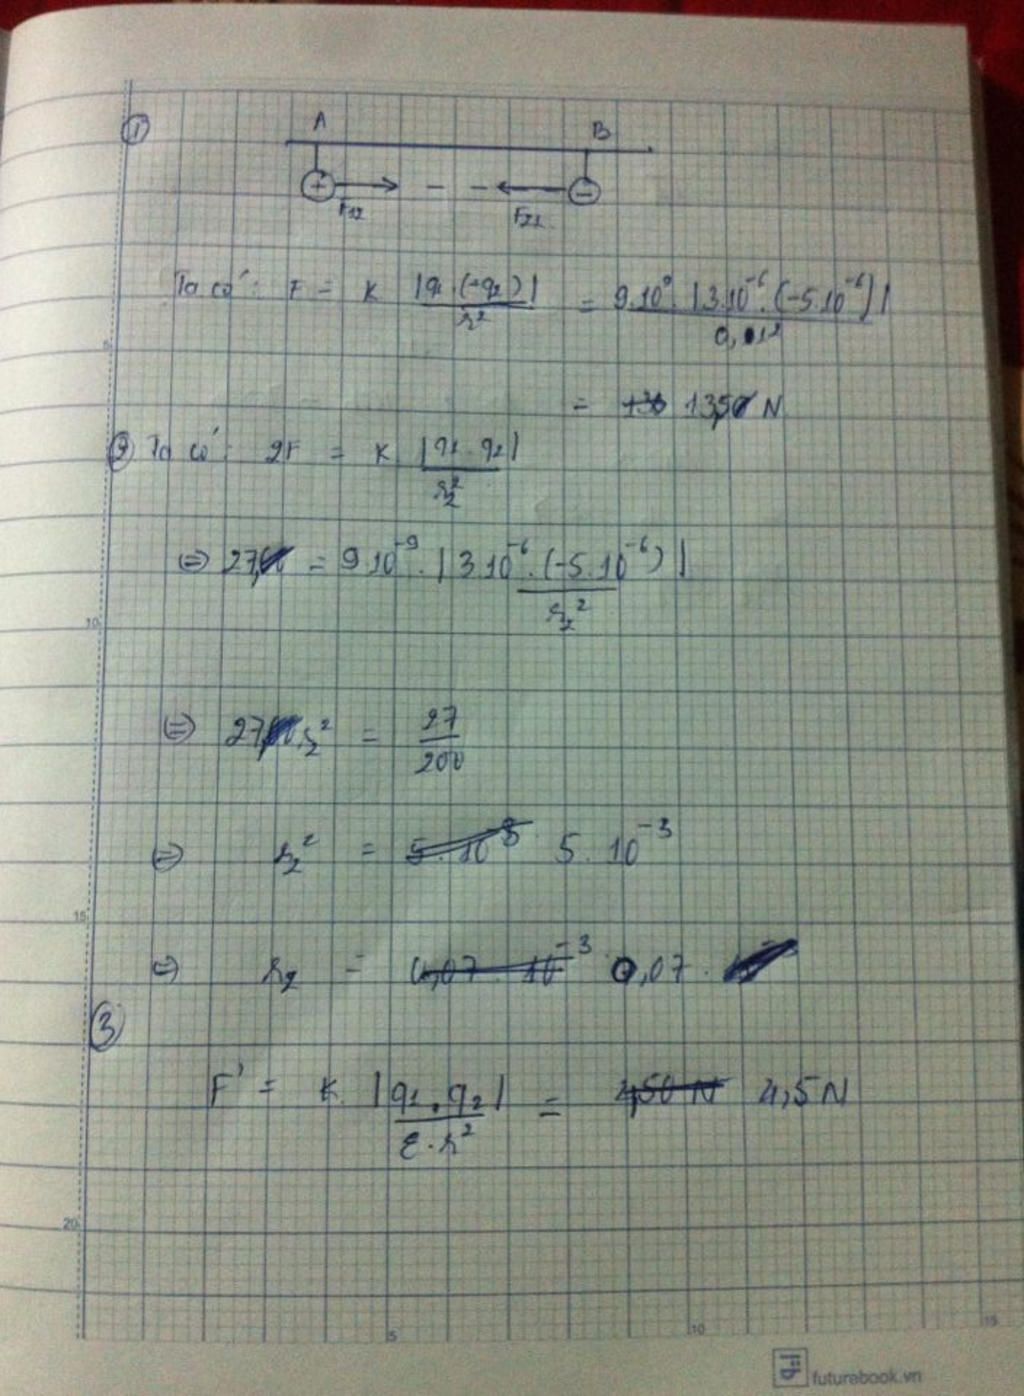 ①
A B
+ −
F12 F21
Ta có: F = K |q1.(-q2)| / r² = 9.10⁹.|3.10⁻⁶.(-5.10⁻⁶)| / 0,1²
5
= 13,5 N
② Ta có: 2F = K |q1.q2| / r2²
⇒ 27 = 9.10⁻⁹.|3.10⁻⁶.(-5.10⁻⁶)| / r2²
10
⇒ 27.r2² = 27/200
⇒ r2² = 5.10⁻³
15
⇒ r2 = 0,07
③
F' = K. |q1.q2| / ε.r² = 4,5 N
20
5 10 15
futurebook.vn